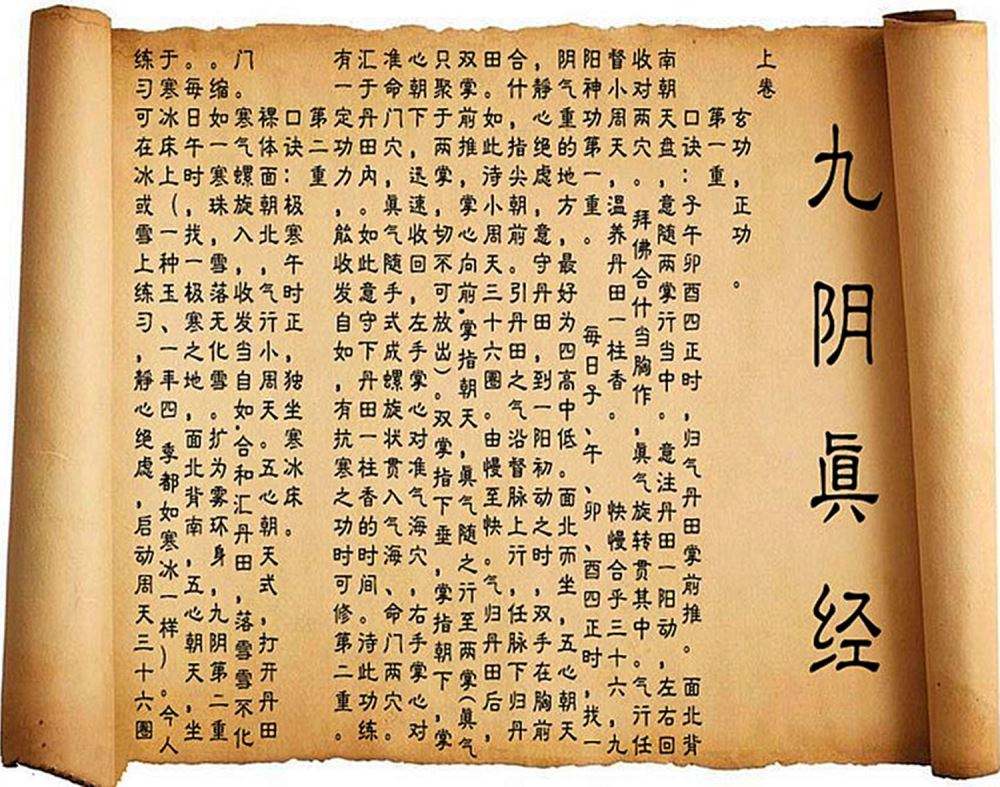 九阴眞经
上卷
玄功，正功。
第一重
口诀：子午卯酉四正时，归气丹田掌前推。面北背
南朝天盘，意随两掌行当中。意注丹田一阳动，左右回
收对两穴。拜佛合什当胸作，眞气旋转贯其中。气行任
督小周天，温养丹田一柱香。快慢合乎三十六，九
阳神功第一重。每日子、午、卯、酉四正时，找一
阴气重的地方，最好为四高中低。面北而坐，五心朝天
，静心绝虑，意守丹田，到一阳初动之时，双手在胸前
合什，指尖朝前。引丹田之气沿督脉上行，任脉下归丹
田。如此待小周天三十六圈。由慢至快。气归丹田后，
双掌前推，掌心向前.掌指朝天，眞气随之行至两掌(眞气
只聚于两掌，切不可放出)。双掌指下垂，掌指朝下，掌
心朝下，迅速收回，左手掌心对准气海穴，右手掌心对
准命门穴，眞气随手式成螺旋状贯入气海、命门两穴。
汇于丹田内。如此意守下丹田一柱香的时间。待此功练
有一定功力，能收发自如，有抗寒之功时可修第二重。
第二重
口诀：极寒午时正，独坐寒冰床。
裸体面朝北，气行小周天。五心朝天式，打开丹田
门。寒气螺旋入，收发当自如.合和汇丹田，落雪雪不化
。缩如一寒珠，雪落无化雪。扩为雾环身，九阴第二重
。每日午时，找一极寒之地，面北背南，五心朝天，坐
于寒冰床上(，一种玉、一年四季都如寒冰一样)。今人
练习可在冰或雪上练习，静心绝虑，启动周天三十六圈